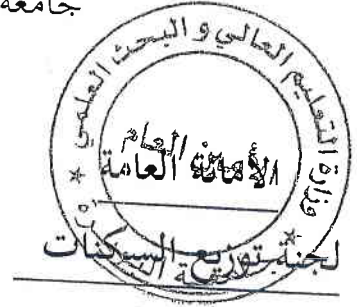 جامعة
وزارة التعليم العالي و البحث العلمي
الأمانة العامة
لجنة توزيع السكنات